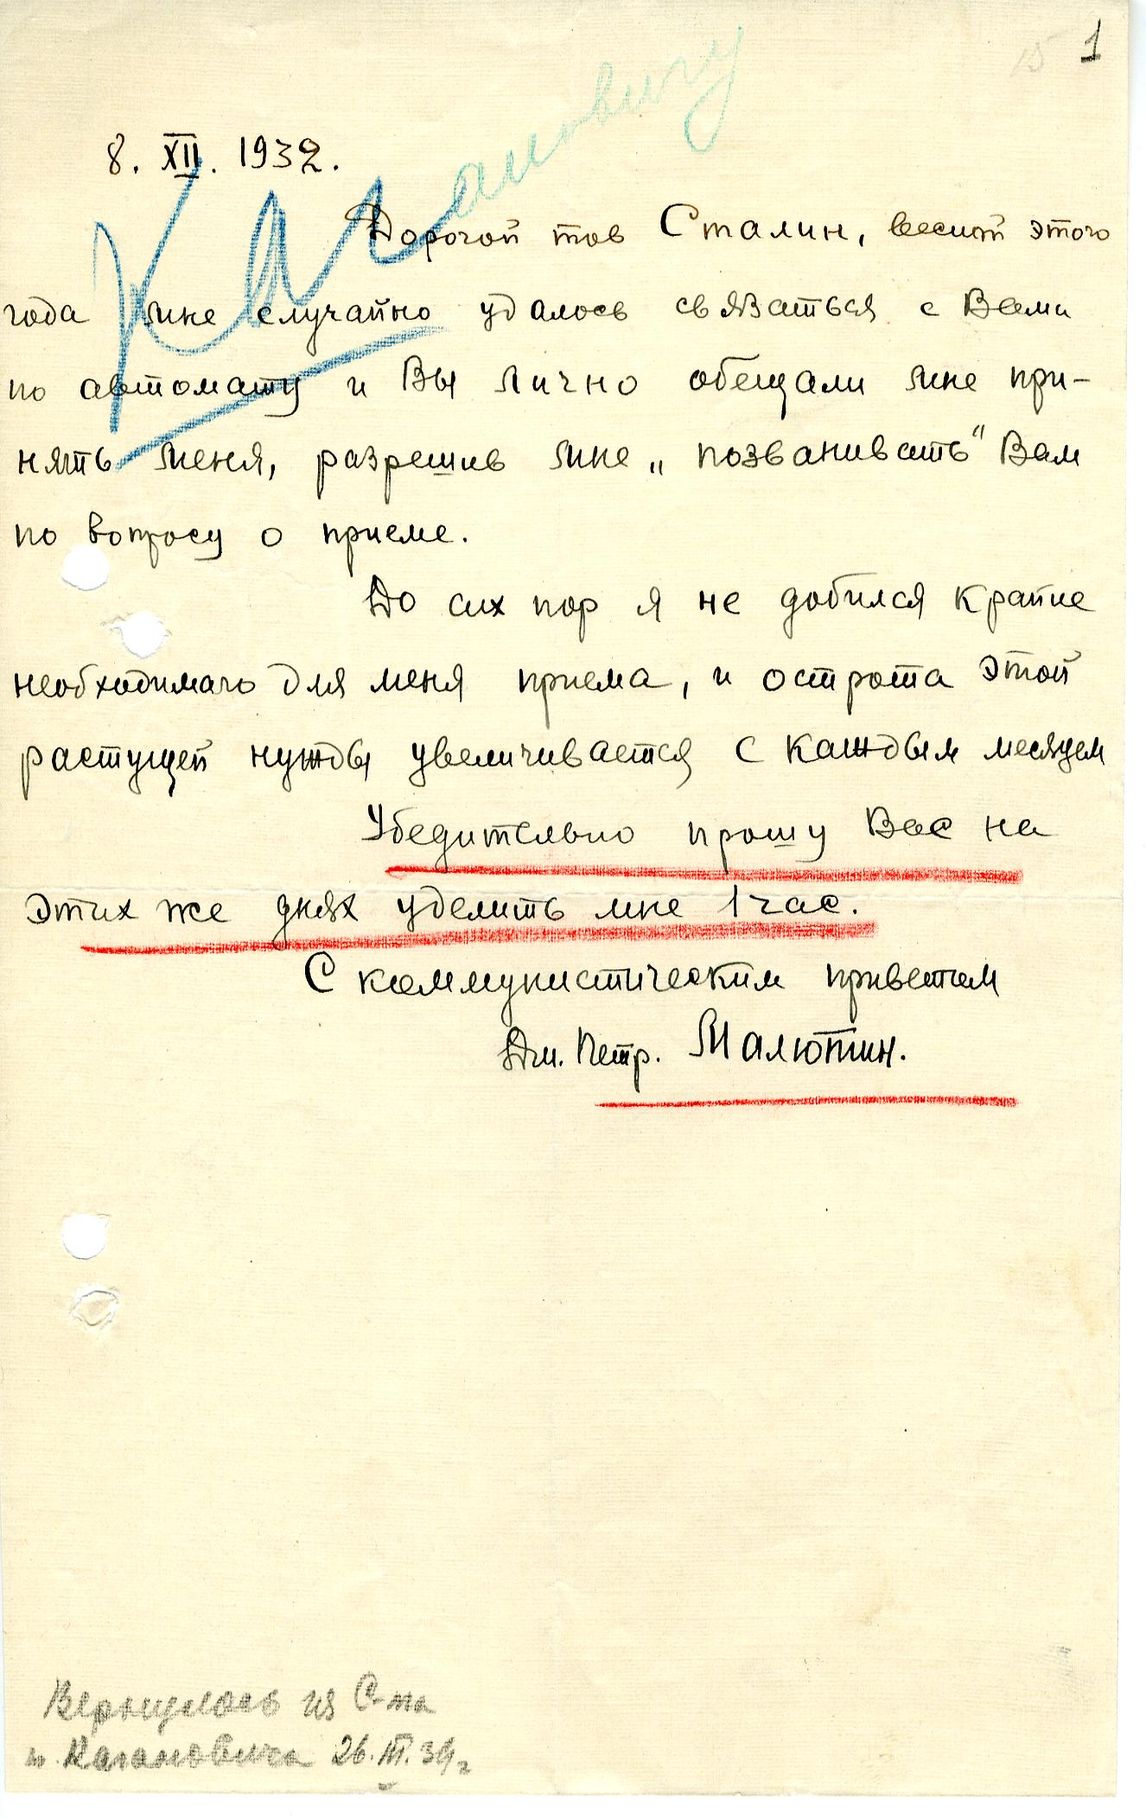 15 1
Кагановичу
8. XII. 1932.
Дорогой тов Сталин, весной этого
года мне случайно удалось связаться с Вами
по автомату и Вы лично обещали мне при-
нять меня, разрешив мне „позванивать“ Вам
по вопросу о приеме.
До сих пор я не добился крайне
необходимого для меня приема, и острота этой
растущей нужды увеличивается с каждым месяцем
Убедительно прошу Вас на
этих же днях уделить мне 1 час.
С коммунистическим приветом
Дм. Петр. Малютин.
Вернулось из С-та
т. Кагановича 26.III.34г